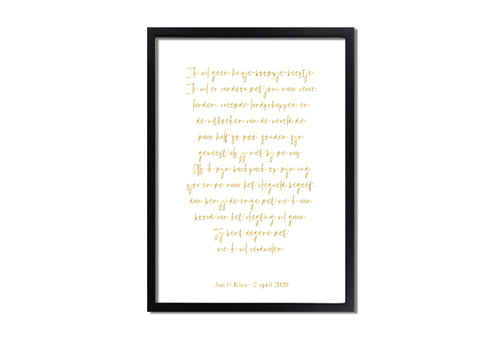 Ik wil geen huisje-boompje-beestje
Ik wil er vandoor met jou, naar verre
landen, vreemde landschappen en
de uithoeken van de wereld die
maar half zo mooi zouden zijn
geweest als jij niet bij me was.
Als ik mijn backpack op mijn rug
gooi en me naar het vliegveld begeef,
dan ben jij de enige met wie ik aan
boord van het vliegtuig wil gaan.
Jij bent degene met
wie ik wil verdwalen.
Jim & Kim - 2 april 2020